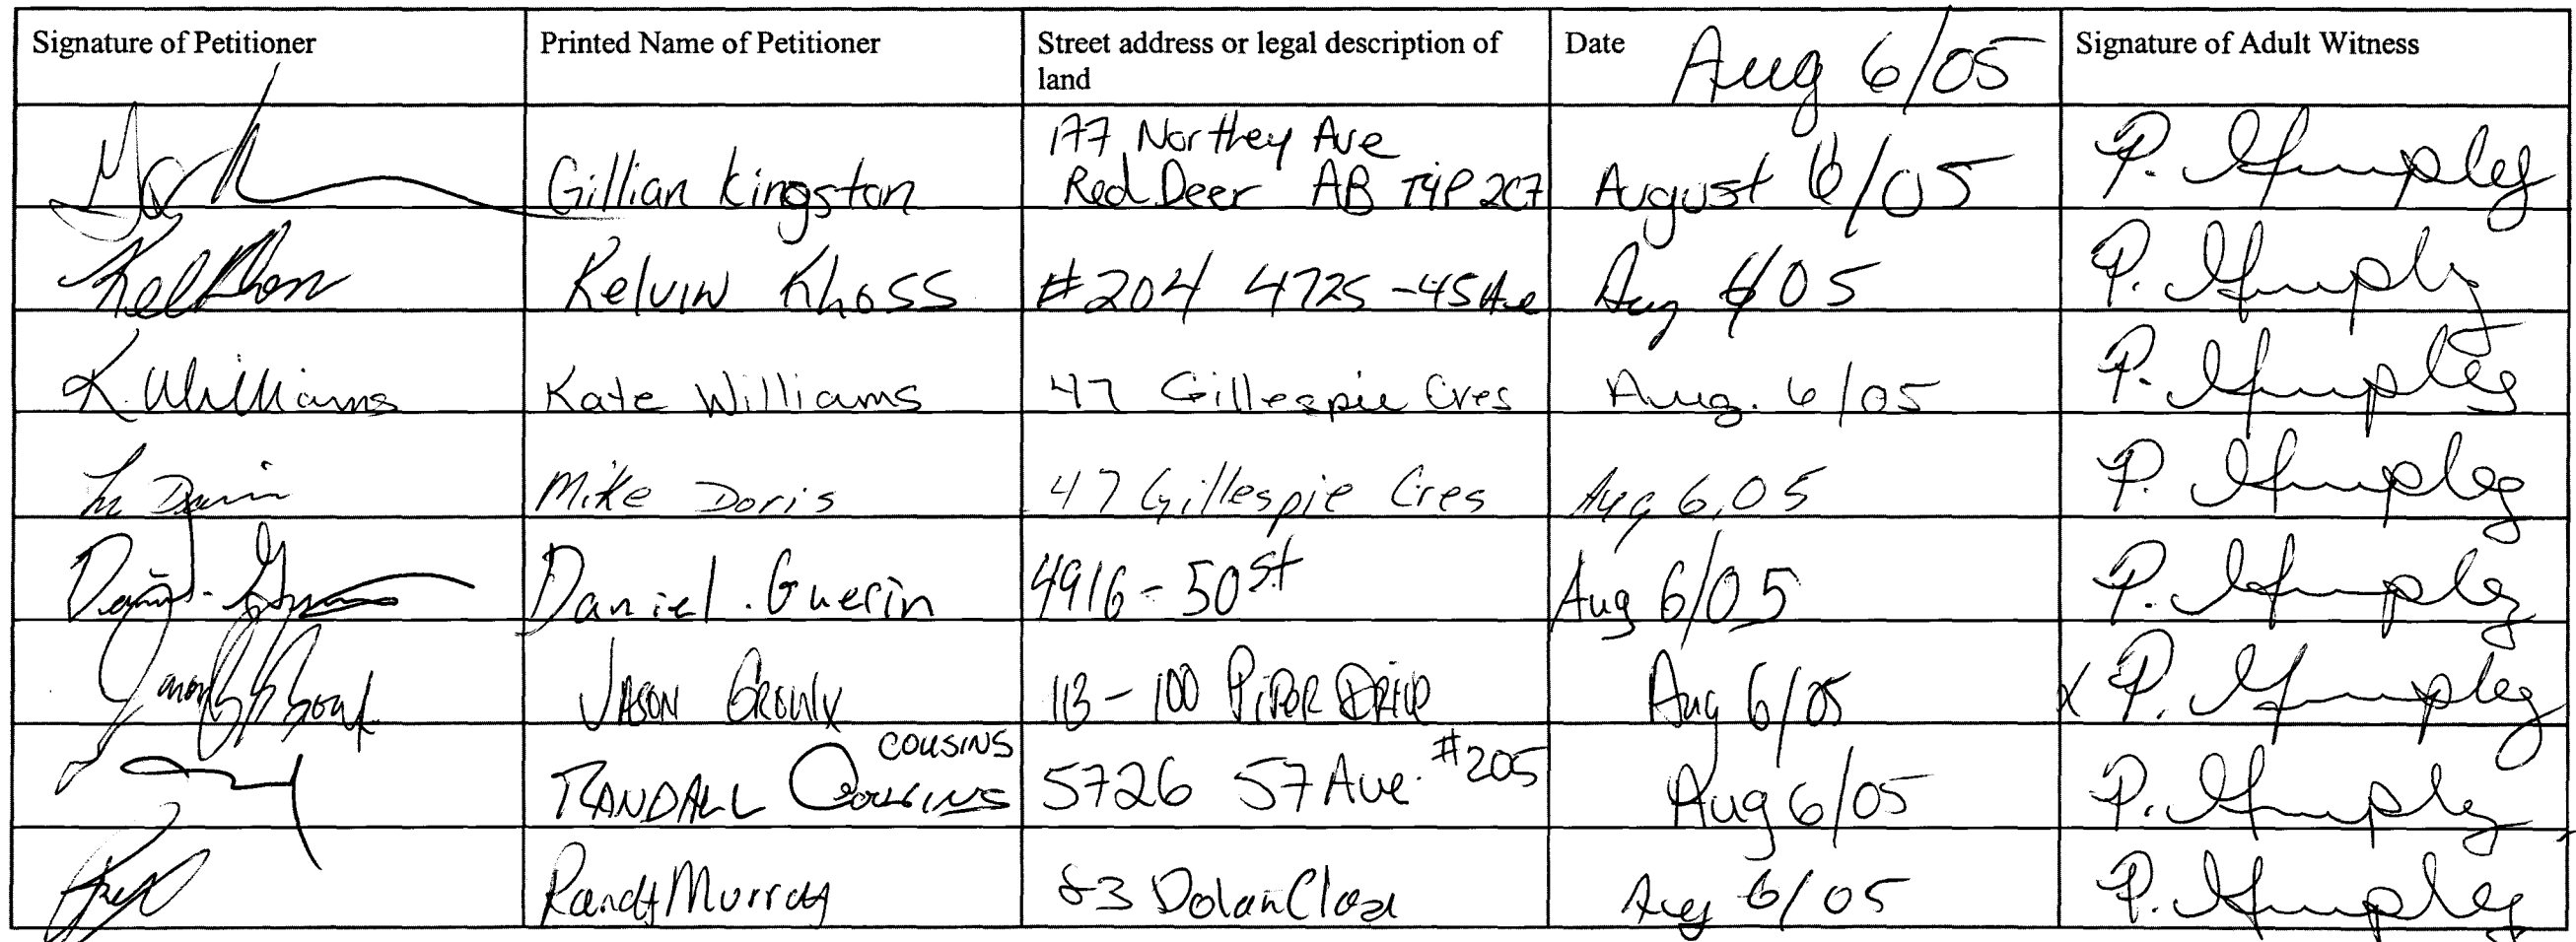 Signature of Petitioner Printed Name of Petitioner Street address or legal description of land Date Aug 6/05 Signature of Adult Witness
Gillian Kingston 177 Northey Ave
Red Deer AB T4P 2C7 August 6/05 P.
Kelvin Khoss #204 4725 -45 Ave Aug 6/05 P.
K. Williams Kate Williams 47 Gillespie Cres Aug. 6/05 P.
Mike Doris 47 Gillespie Cres Aug 6, 05 P.
Daniel. Guerin 4916 - 50 st Aug 6/05 P.
JASON 113 - 100 PiPER DRIVE Aug 6/05 x P.
RANDALL COUSINS COUSINS 5726 57 Ave. #205 Aug 6/05 P.
Randy Murray 83 Dolan Close Aug 6/05 P.